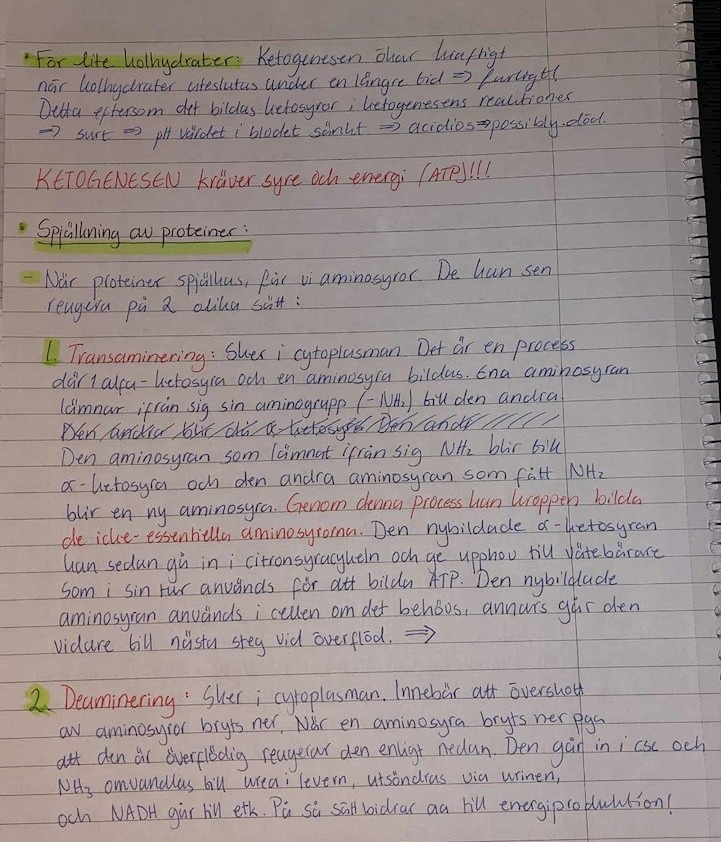 • För lite kolhydrater: Ketogenesen ökar kraftigt
när kolhydrater uteslutas under en längre tid => farligt!
Detta eftersom det bildas ketosyror i ketogenesens reaktioner
=> surt => pH värdet i blodet sänkt => acidios => possibly död.
KETOGENESEN kräver syre och energi (ATP)!!!
• Spjälkning av proteiner:
- När proteiner spjälkas, får vi aminosyror. De kan sen
reagera på 2 olika sätt:
1. Transaminering: Sker i cytoplasman. Det är en process
där 1 alfa-ketosyra och en aminosyra bildas. Ena aminosyran
lämnar ifrån sig sin aminogrupp (-NH2) till den andra.
Den andra blir då α-ketosyra Den andr
Den aminosyran som lämnat ifrån sig NH2 blir till
α-ketosyra och den andra aminosyran som fått NH2
blir en ny aminosyra. Genom denna process kan kroppen bilda
de icke-essentiella aminosyrorna. Den nybildade α-ketosyran
kan sedan gå in i citronsyracykeln och ge upphov till vätebärare
som i sin tur används för att bilda ATP. Den nybildade
aminosyran används i cellen om det behövs, annars går den
vidare till nästa steg vid överflöd. =>
2. Deaminering: Sker i cytoplasman. Innebär att överskott
av aminosyror bryts ner. När en aminosyra bryts ner pga
att den är överflödig reagerar den enligt nedan. Den går in i csc och
NH3 omvandlas till urea i levern, utsöndras via urinen,
och NADH går till etk. På så sätt bidrar aa till energiproduktion!